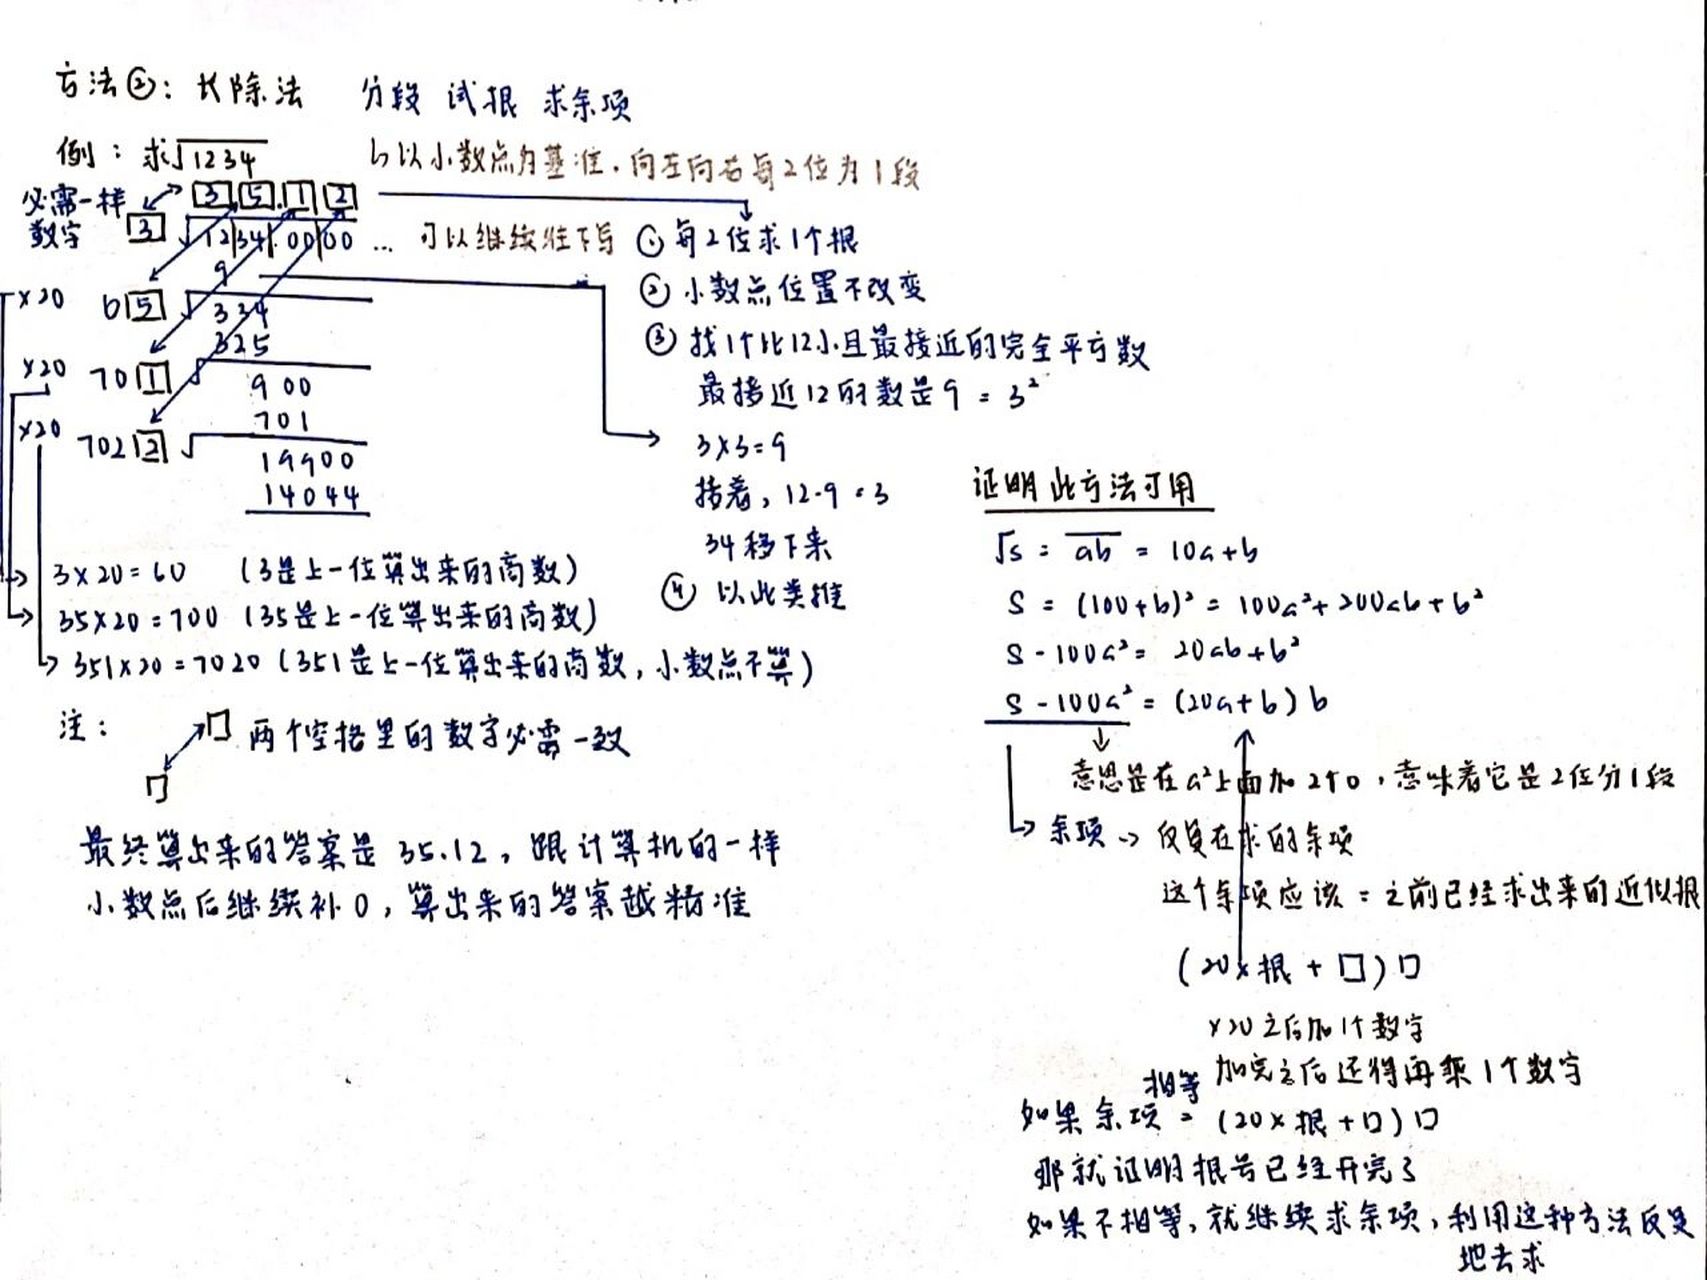 方法②：长除法 分段 试根 求余项
例：求√1234 ↳以小数点为基准，向左向右每2位为1段
必需一样 3 5 . 1 2
数字 3 √12|34|.00|00 ... 可以继续往下写
9
×20 65 √334
325
×20 701 √900
701
×20 7022 √19900
14044
3×20=60 （3是上一位算出来的商数）
35×20=700 （35是上一位算出来的商数）
351×20=7020（351是上一位算出来的商数，小数点不算）
注： □ 两个空格里的数字必需一致
□
最终算出来的答案是35.12，跟计算机的一样
小数点后继续补0，算出来的答案越精准
① 每2位求1个根
② 小数点位置不改变
③ 找1个比12小且最接近的完全平方数
最接近12的数是9 = 3²
3×3=9
接着，12-9=3
34移下来
④ 以此类推
证明此方法可用
√s = ab = 10a+b
S = (10a+b)² = 100a²+200ab+b²
S-100a² = 20ab+b²
S-100a² = (20a+b)b
意思是在a²上面加2个0，意味着它是2位分1段
余项→反复在求的余项
这个余项应该=之前已经求出来的近似根
(20×根+□)□
×20之后加1个数字
加完之后还得再乘1个数字
相等
如果余项=(20×根+□)□
那就证明根号已经开完了
如果不相等，就继续求余项，利用这种方法反复
地去求